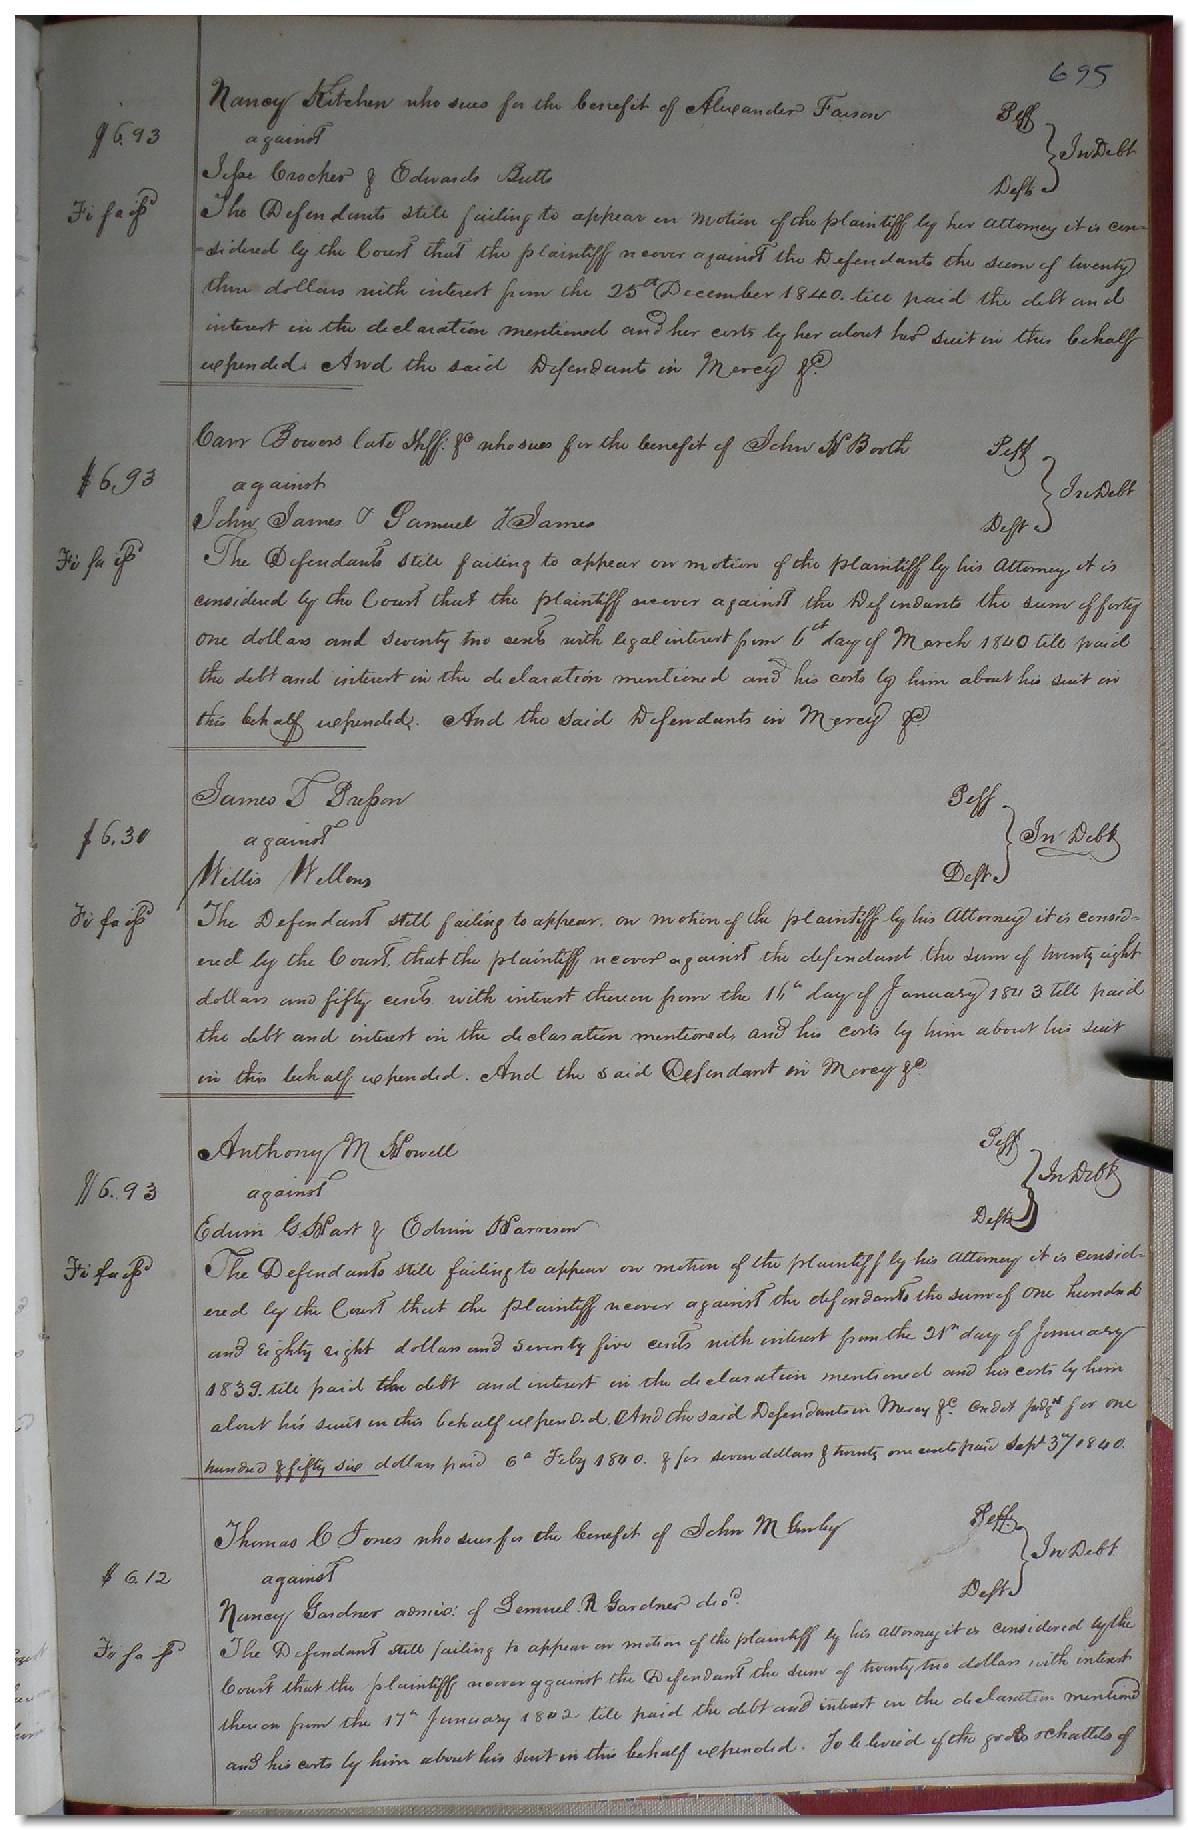 695
Nancy Kitchen who sues for the benefit of Alexander Faison Plff
$6.93 against In Debt
Jesse Crocker & Edwards Butts Defts
Fi fa issd The Defendants still failing to appear on motion of the plaintiff by her attorney it is con-
-sidered by the Court that the plaintiff recover against the Defendants the sum of twenty
three dollars with interest from the 25th December 1840. till paid the debt and
interest in the declaration mentioned and her costs by her about her suit in this behalf
expended. And the said Defendants in Mercy &c.
Carr Bowers late Shff: &c who sues for the benefit of John W Booth Plff
$6.93 against In Debt
John James & Samuel James Deft
Fi fa issd The Defendants still failing to appear on motion of the plaintiff by his Attorney it is
considered by the Court that the plaintiff recover against the Defendants the sum of forty
one dollars and seventy two cents with legal interest from 6th day of March 1840 till paid
the debt and interest in the declaration mentioned and his costs by him about his suit in
this behalf expended. And the said Defendants in Mercy &c
James D Presson Plff
$6.30 against In Debt
Willis Wellons Deft
Fi fa issd The Defendant still failing to appear. on motion of the plaintiff by his Attorney it is consid-
ered by the Court, that the plaintiff recover against the defendant the sum of twenty eight
dollars and fifty cents with interest thereon from the 16th day of January 1843 till paid
the debt and interest in the declaration mentioned, and his costs by him about his suit
in this behalf expended. And the said Defendant in Mercy &c
Anthony M Howell Plff
$6.93 against In Debt
Edwin G Hart & Edwin Harrison Defts
Fi fa issd The Defendants still failing to appear on motion of the plaintiff by his attorney it is consid-
ered by the Court that the plaintiff recover against the defendants the sum of one hundred
and Eighty eight dollars and seventy five cents with interest from the 21st day of January
1839. till paid the debt and interest in the declaration mentioned and his costs by him
about his suit in this behalf expended. And the said Defendants in Mercy &c. credit judgt for one
hundred & fifty six dollars paid 6th Feby 1840. & for seven dollars & twenty one cents paid Sept 3rd 1840.
Thomas C Jones who sues for the benefit of John M Gurley Plff
$6.12 against In Debt
Nancy Gardner admix: of Lemuel R Gardner decd. Deft
Fi fa The Defendant still failing to appear on motion of the plaintiff by his attorney it is considered by the
Court that the plaintiff recover against the Defendant the sum of twenty two dollars with interest
thereon from the 17th January 1842 till paid the debt and interest in the declaration mentioned
and his costs by him about his suit in this behalf expended. To be levied of the goods & chattels of